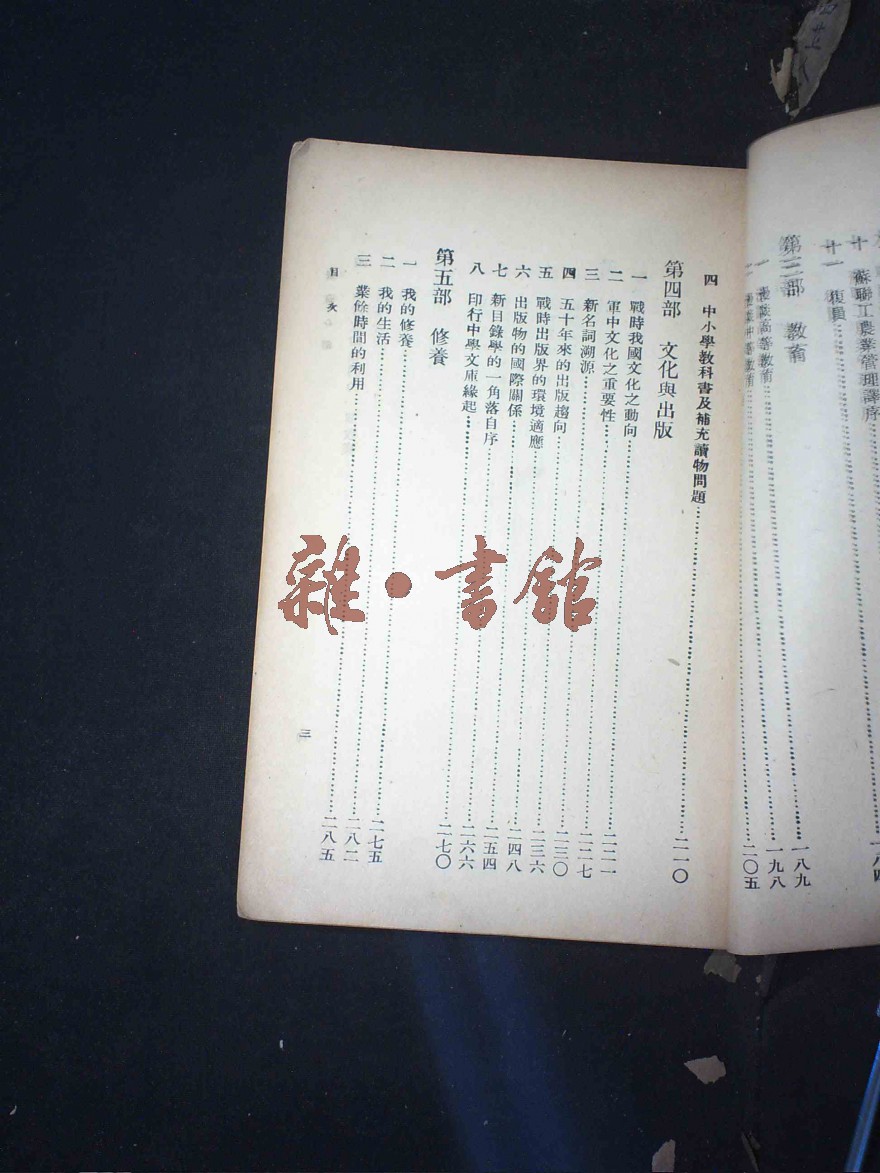 十 蘇聯工農業管理譯序……一八四
十一 復員……一八九
第三部 教育
高等教育……一九八
中等教育……二〇五
四 中小學教科書及補充讀物問題……二一〇
第四部 文化與出版
一 戰時我國文化之動向……二二一
二 軍中文化之重要性……二二七
三 新名詞溯源……二三〇
四 五十年來的出版趨向……二三六
五 戰時出版界的環境適應……二四八
六 出版物的國際關係……二五四
七 新目錄學的一角落自序……二六六
八 印行中學文庫緣起……二七〇
第五部 修養
一 我的修養……二七五
二 我的生活……二八二
三 業餘時間的利用……二八五
目次
三
雜·書館